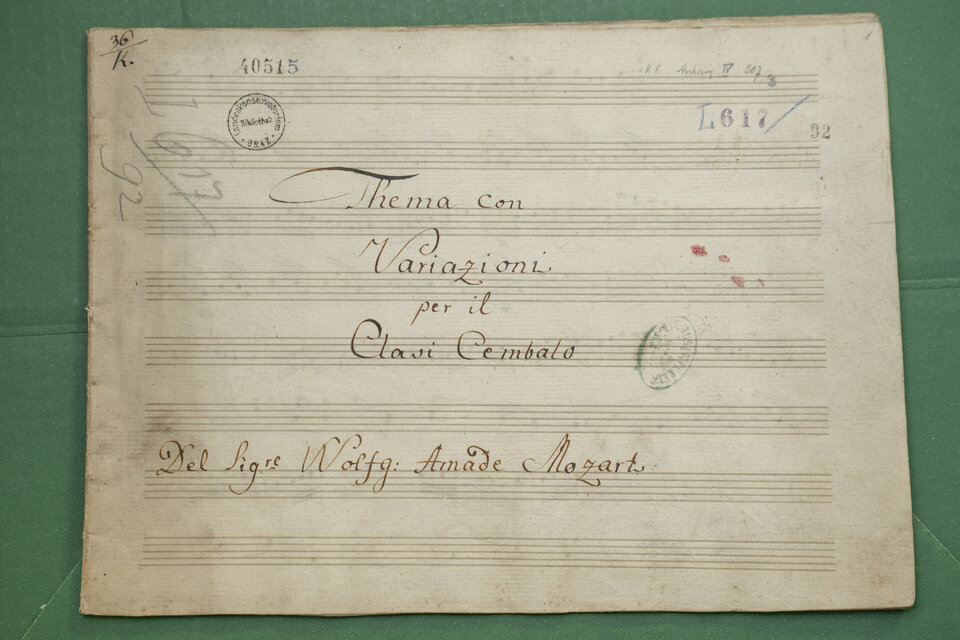 36
K.
40515
Landeskonservatorium
Bibliothek
GRAZ
K.V. Anhang IV 207
3
1
L 617
92
L 617
92
Thema con
Variazioni
per il
Clavi Cembalo
Del Sigre Wolfg: Amade Mozart